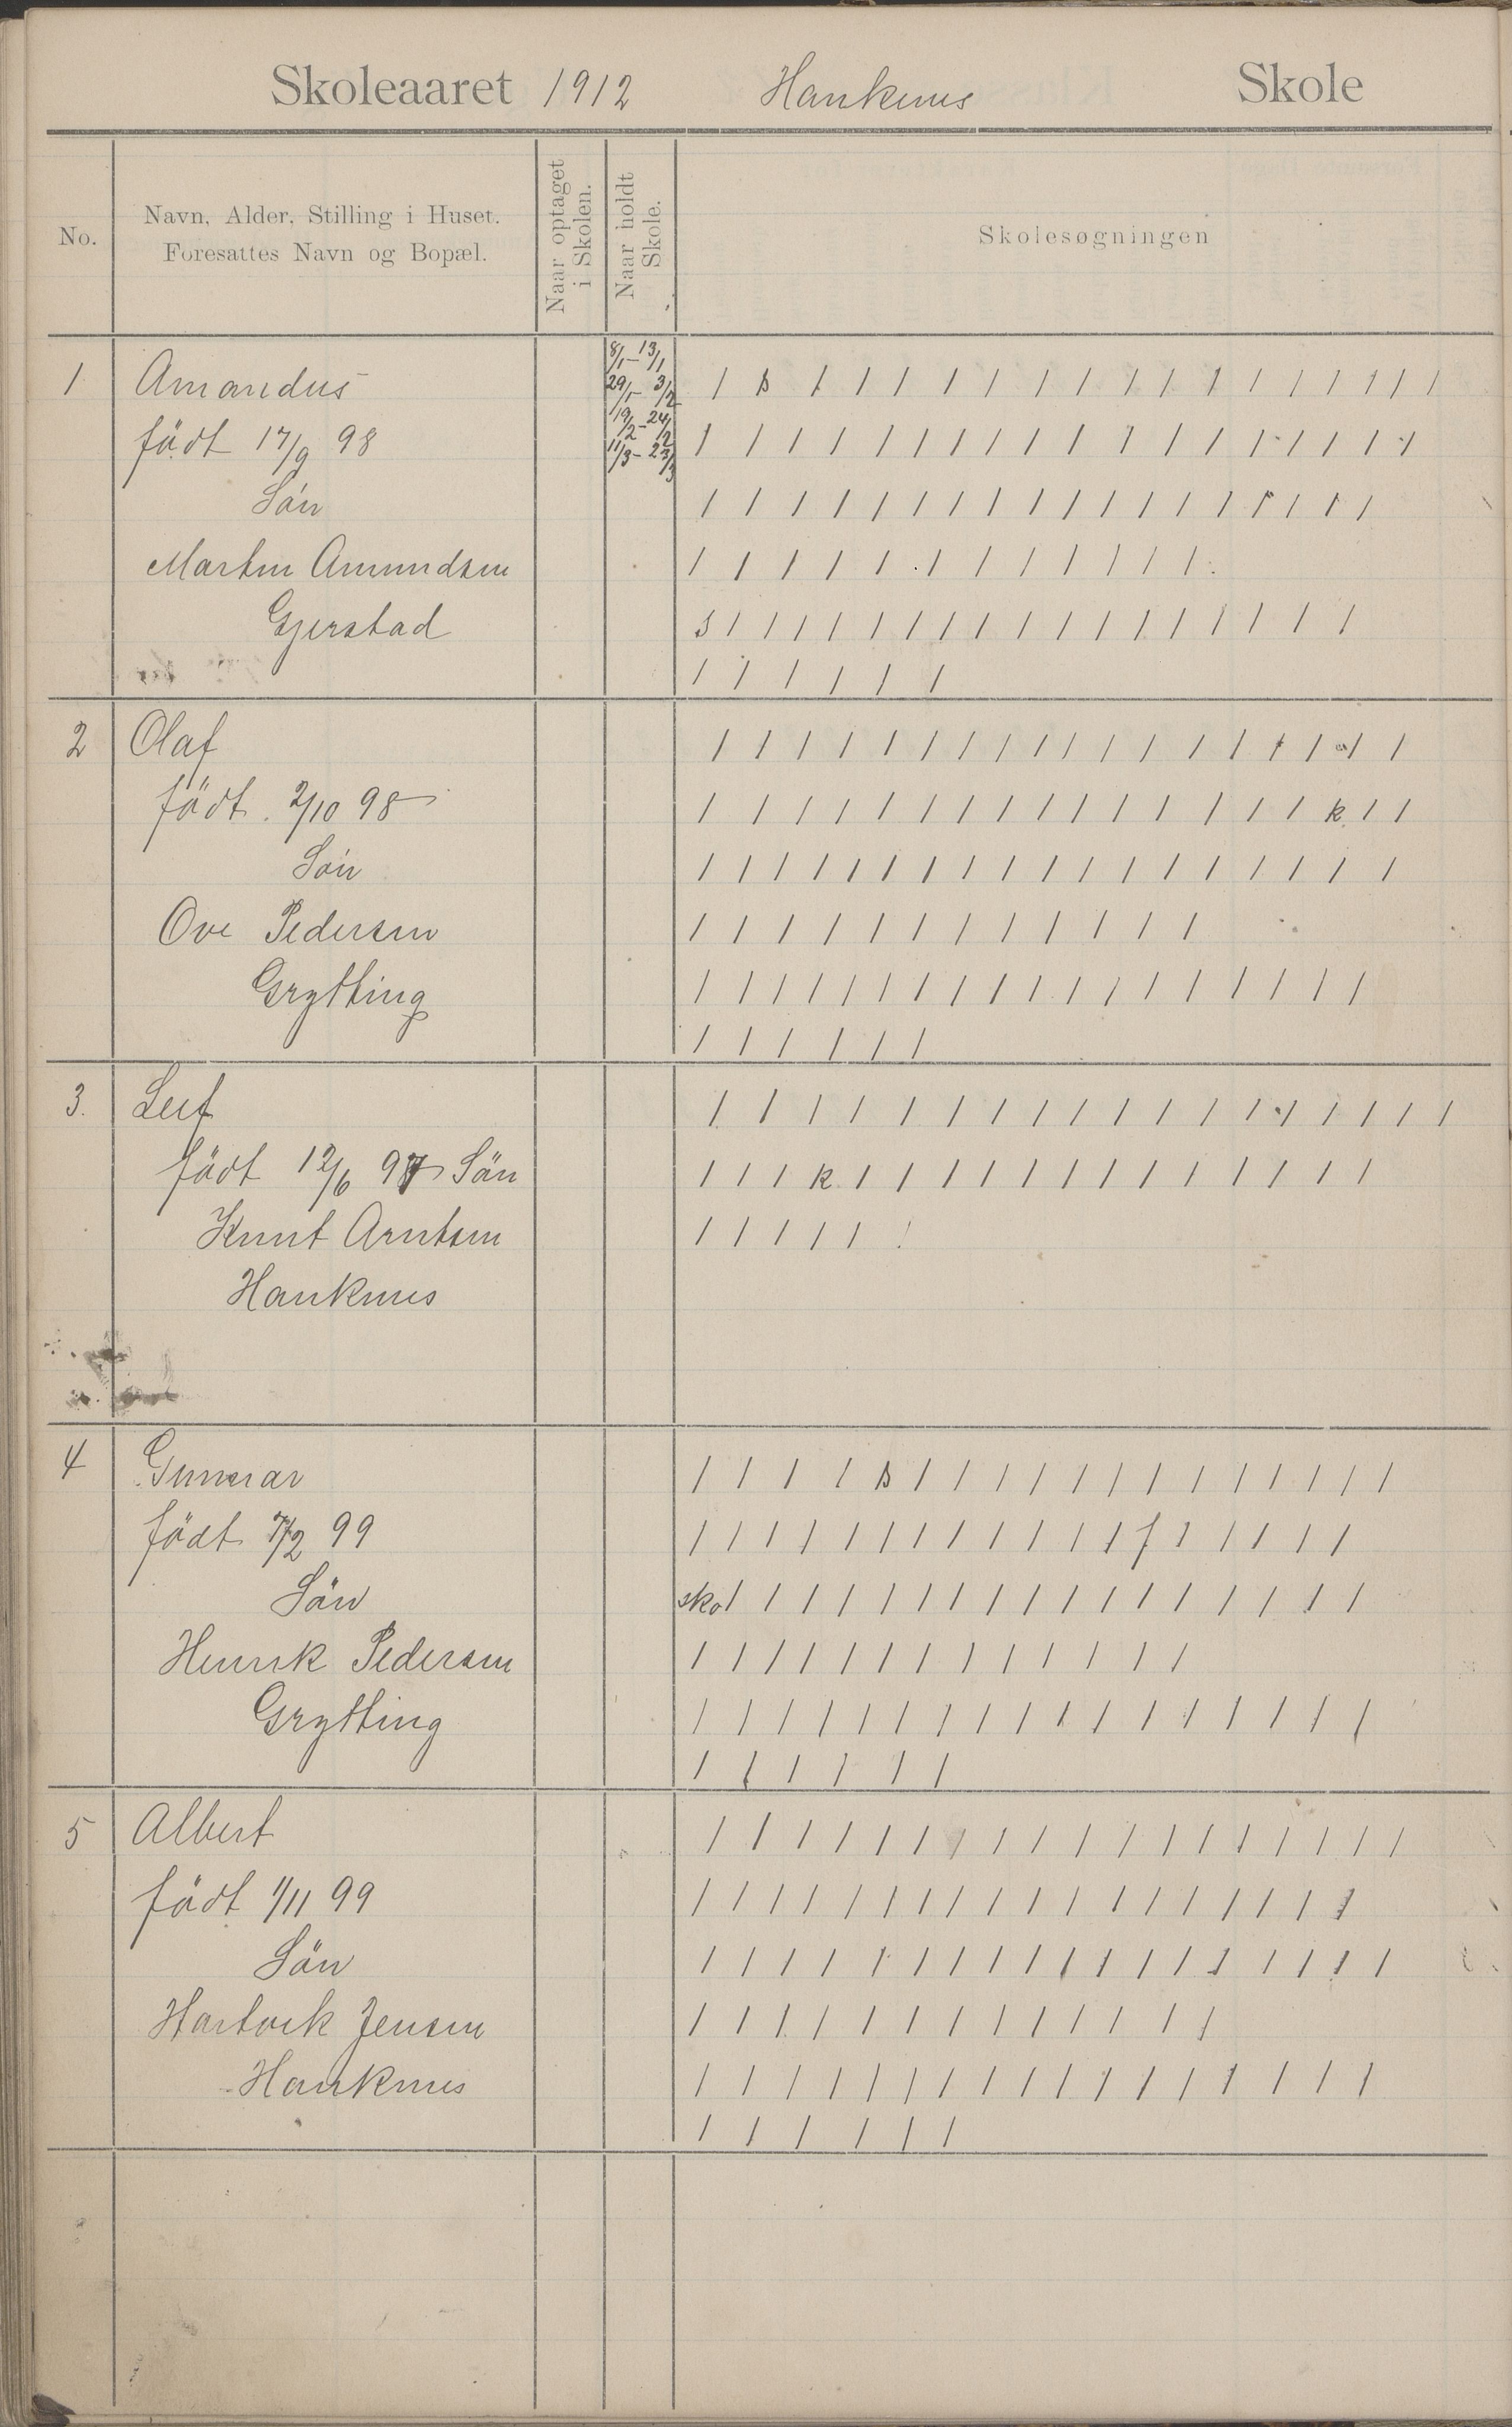 Skoleaaret 1912 Hanknes Skole
No.
Navn, Alder, Stilling i Huset.
Foresattes Navn og Bopæl.
Naar optaget
i Skolen.
Naar holdt
Skole.
Skolesøgningen
1 Amandus 8/1-13/1
29/1-3/2 / s / / / / / / / / / / / / / / / /
19/2-24/2
födt 17/9 98 11/3-23/3 / / / / / / / / / / / / / / / / / /
Sön / / / / / / / / / / / / / / / / / /
Martin Amundsen / / / / / / / / / / / /
Gjerstad s / / / / / / / / / / / / / / / / /
/ / / / / /
2 Olaf / / / / / / / / / / / / / / / / / /
födt 2/10 98 / / / / / / / / / / / / / / / k / /
Sön / / / / / / / / / / / / / / / / / /
Ove Pedersen / / / / / / / / / / / /
Grytting / / / / / / / / / / / / / / / / / /
/ / / / / /
3. Leif / / / / / / / / / / / / / / / / / /
födt 12/6 97 Sön / / / k / / / / / / / / / / / / / /
Knut Arntsen / / / / / /
Hanknes
4 Gunnar / / / / s / / / / / / / / / / / / /
födt 7/2 99 / / / / / / / / / / / / f / / / / /
Sön sko / / / / / / / / / / / / / / / / /
Henrik Pedersen / / / / / / / / / / / / /
Grytting / / / / / / / / / / / / / / / / /
/ / / / / /
5 Albert / / / / / / / / / / / / / / / / / /
födt 1/11 99 / / / / / / / / / / / / / / / / / /
Sön / / / / / / / / / / / / / / / / / /
Hartvik Jensen / / / / / / / / / / / /
Hanknes / / / / / / / / / / / / / / / / /
/ / / / / /